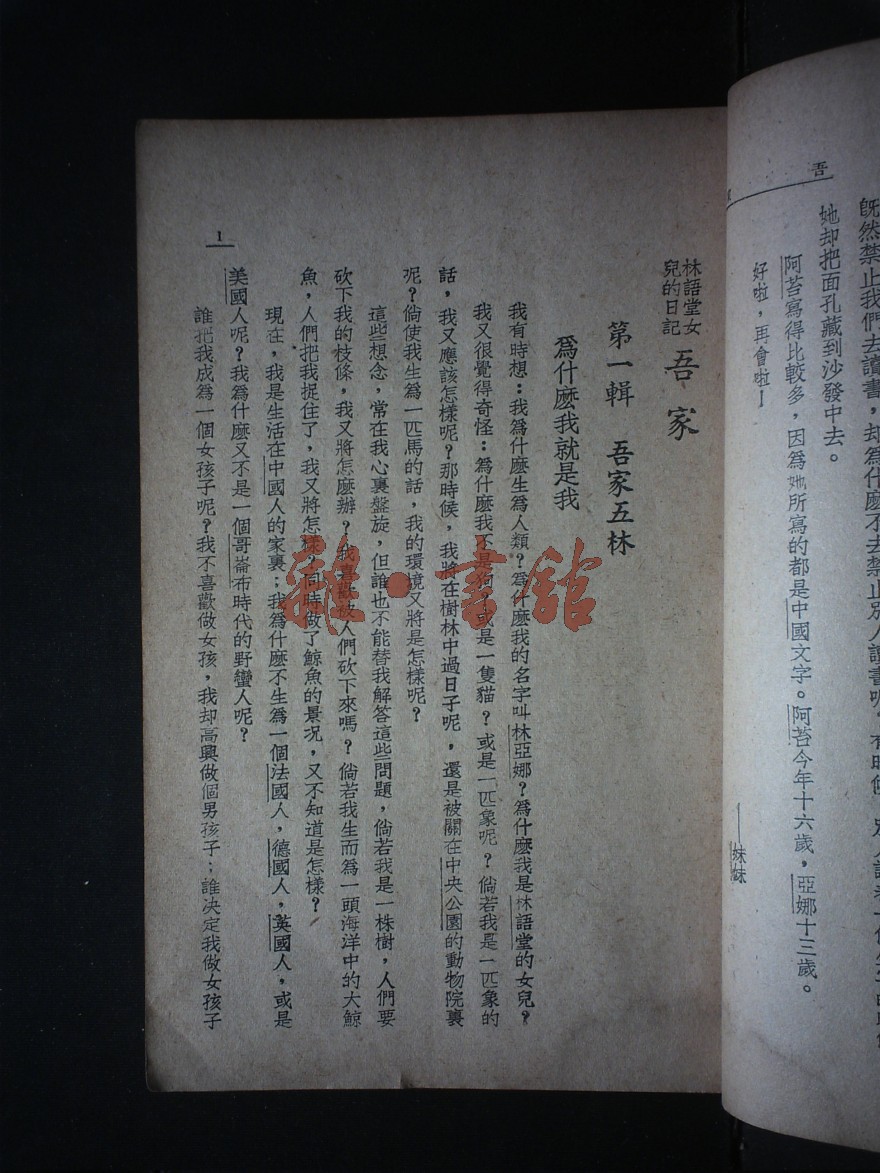 吾
旣然禁止我們去讀書，却爲什麽不去禁止別人讀書呢。有時候
她却把面孔藏到沙發中去。
阿苔寫得比較多，因爲她所寫的都是中國文字。阿苔今年十六歲，亞娜十三歲。
好啦，再會啦！
——妹妹
林語堂女兒的日記
吾家
第一輯　吾家五林
爲什麽我就是我
我有時想：我爲什麽生爲人類？爲什麽我的名字叫林亞娜？爲什麽我是林語堂的女兒？
我又很覺得奇怪：爲什麽我不是狗？或是一隻貓？或是一匹象呢？倘若我是一匹象的
話，我又應該怎樣呢？那時候，我將在樹林中過日子呢，還是被關在中央公園的動物院裏
呢？倘使我生爲一匹馬的話，我的環境又將是怎樣呢？
這些想念，常在我心裏盤旋，但誰也不能替我解答這些問題，倘若我是一株樹，人們要
砍下我的枝條，我又將怎麽辦？我喜歡被人們砍下來嗎？倘若我生而爲一頭海洋中的大鯨
魚，人們把我捉住了，我又將怎樣？同時做了鯨魚的景况，又不知道是怎樣？
現在，我是生活在中國人的家裏；我爲什麽不生爲一個法國人，德國人，英國人，或是
美國人呢？我爲什麽又不是一個哥崙布時代的野蠻人呢？
誰把我成爲一個女孩子呢？我不喜歡做女孩，我却高興做個男孩子；誰決定我做女孩子
1
雜·書館